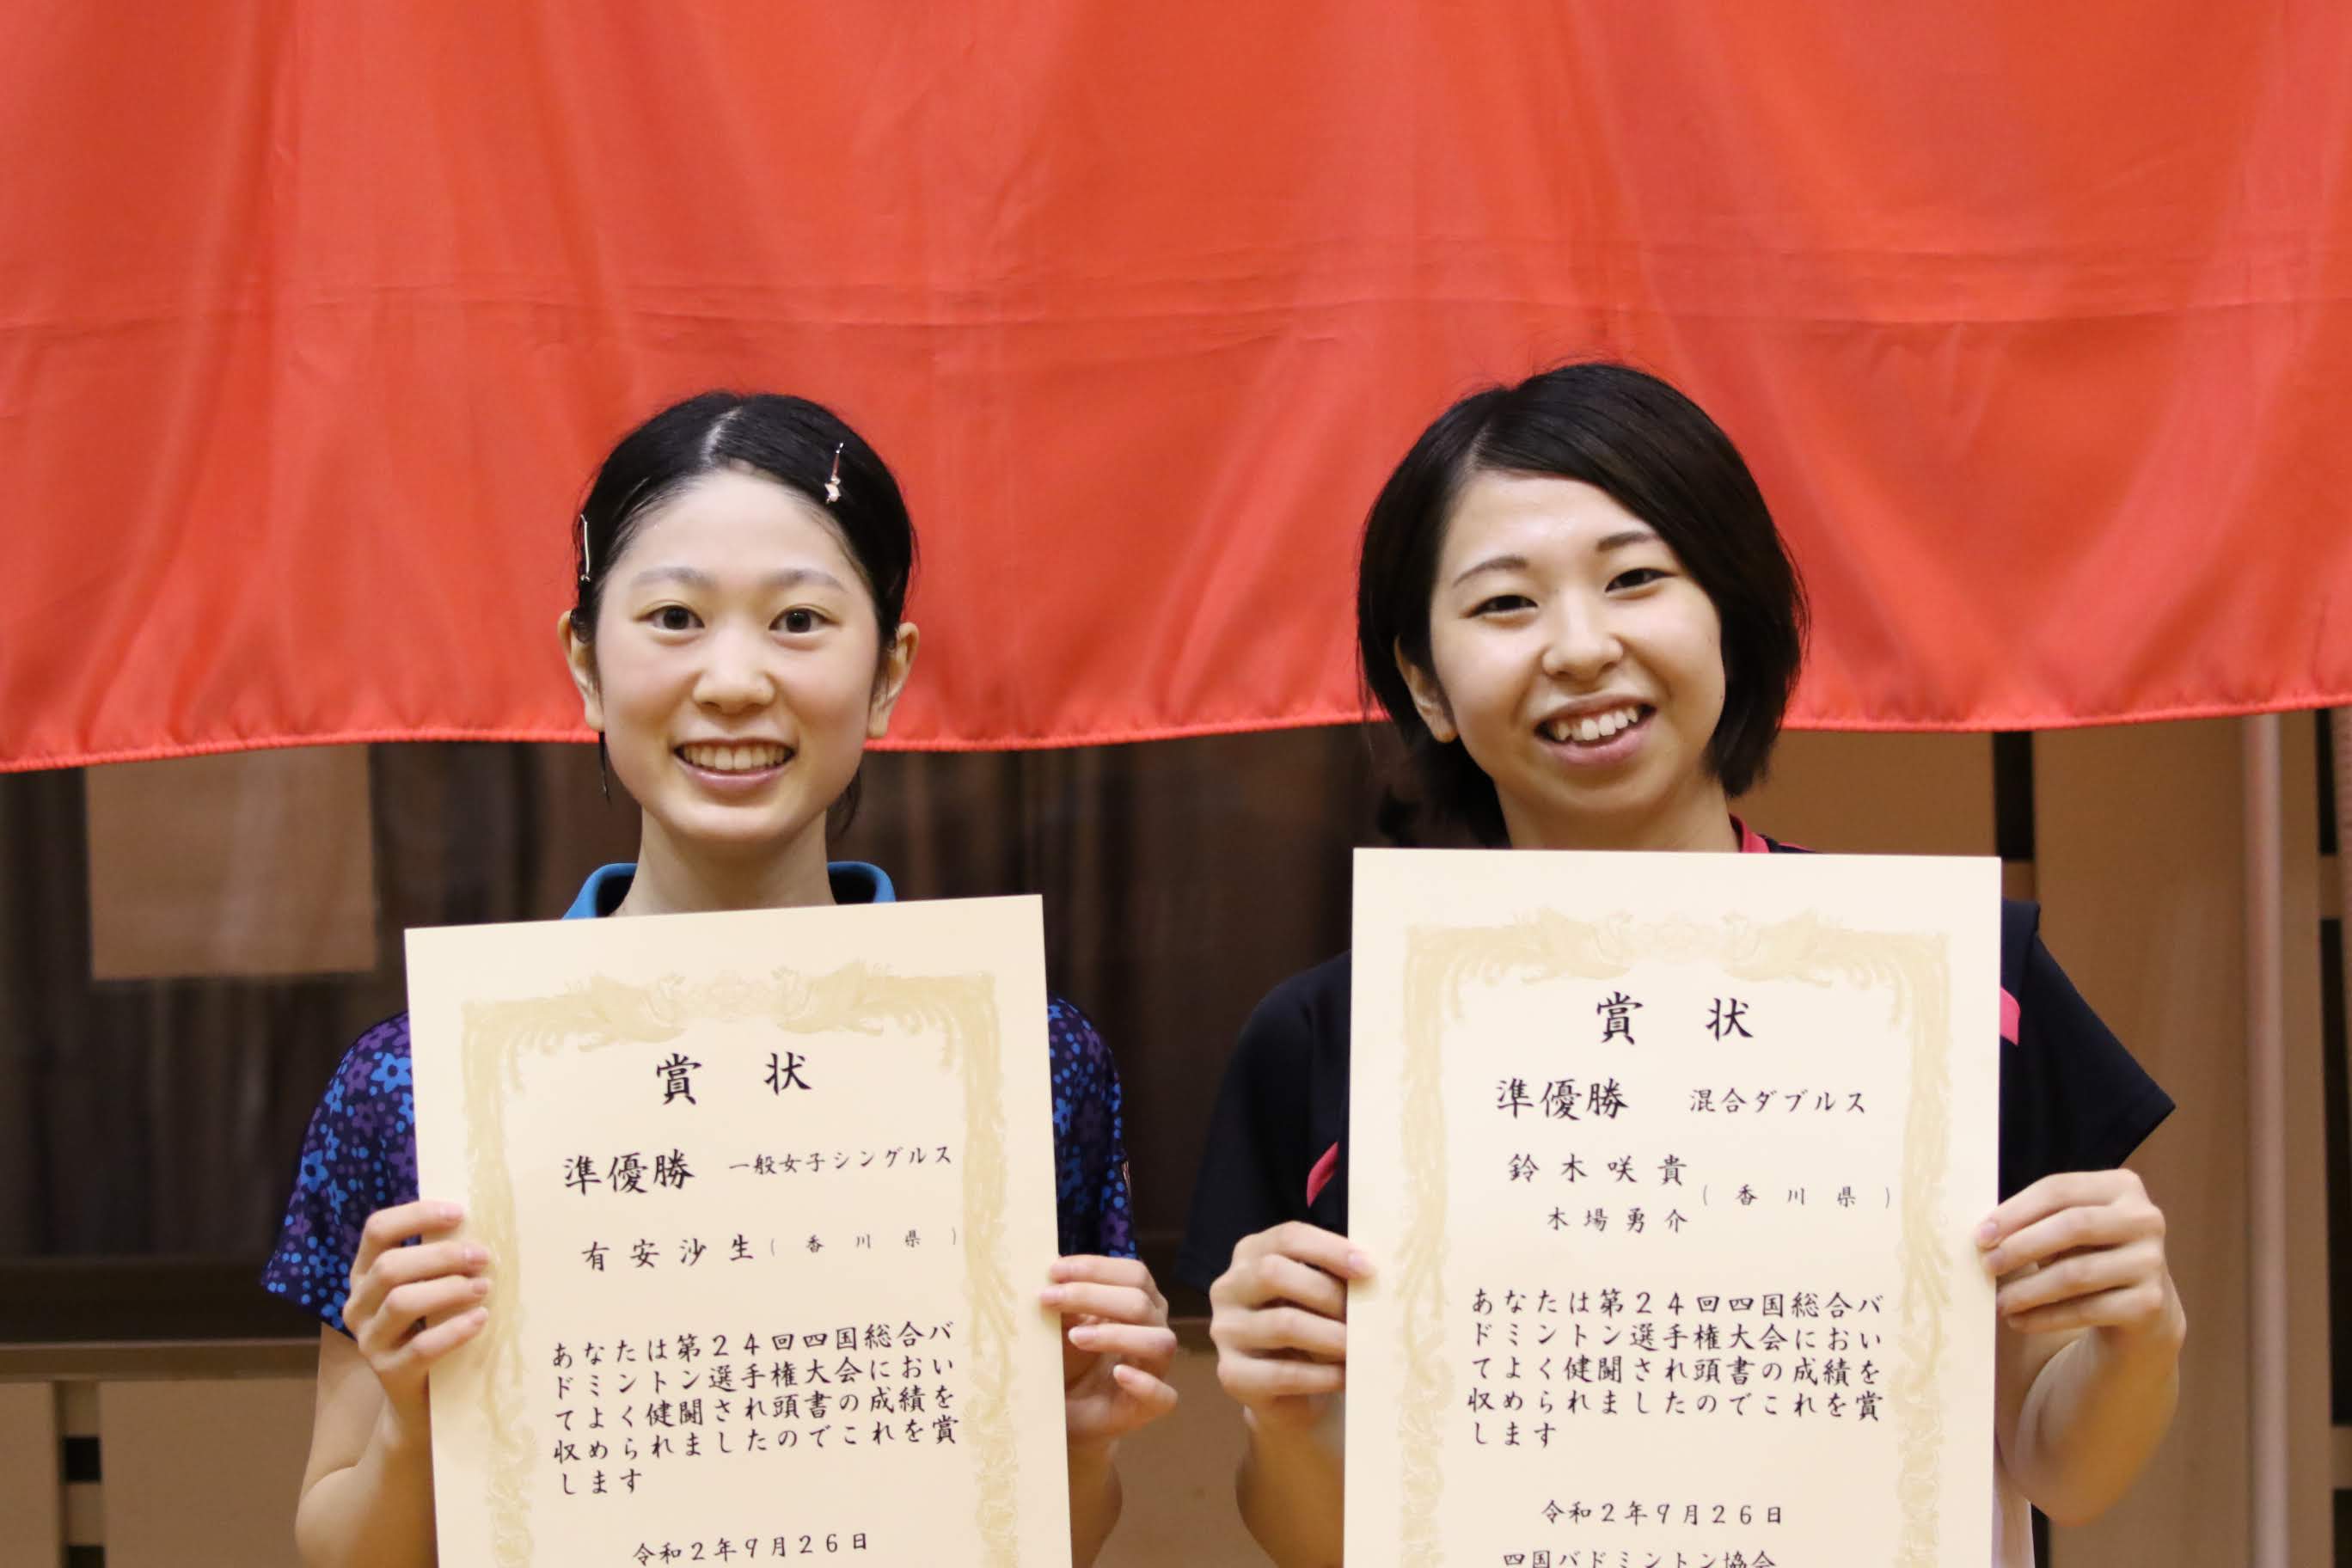 賞状
準優勝 一般女子シングルス
有安沙生(香川県)
あなたは第24回四国総合バ
ドミントン選手権大会におい
てよく健闘され頭書の成績を
収められましたのでこれを賞
します
令和2年9月26日
賞状
準優勝 混合ダブルス
鈴木咲貴
木場勇介
(香川県)
あなたは第24回四国総合バ
ドミントン選手権大会におい
てよく健闘され頭書の成績を
収められましたのでこれを賞
します
令和2年9月26日
四国バドミントン協会